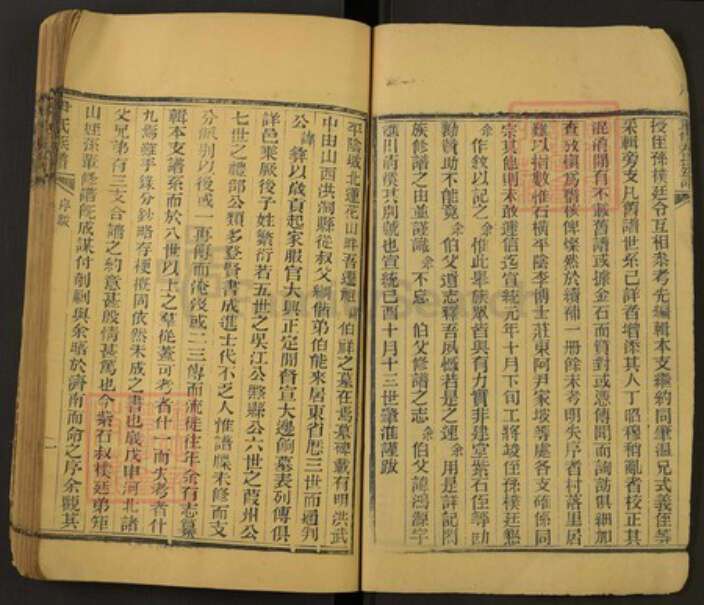 授任孫樸廷令互相參考先編輯本支繼約同肇溫兄式義侄等
采輯旁支凡舊譜世系已詳者增添其人丁昭穆稍亂者校正其
混淆間有不載舊譜或據金石而質對或憑傳聞而詢訪俱細加
查攷橫爲醫核俾燦然於續補一冊餘未考明失序者村落里居
難以指數惟石橫平陰李博士莊東阿尹家坡等處各支確係同
宗其他則未敢遽信迄宣統元年十月下旬工將竣侄孫樸廷懇
余作敘以記之余惟此舉族眾皆與有力實非建堂紫石侄等協
勷贊助不能竟伯父遺志釋吾夙懷若是之速余用是詳記閤
族修譜之由並謹識不忘伯父修譜之志余伯父諱鴻源字
清溪其別號也宣統己酉十月十三世肇淮謹跋
平陰城北蓮花山畔吾遷祖諱伯鮮之墓在焉墓碑載有明洪武
中由山西洪洞縣從叔父綱偕弟伯能來居東省歷三世而通判
公諱鋒以歲貢起家服官大興正定間督宣大邊餉墓表列傳俱
詳邑乘厥後子姓繁衍若五世之吳江公縶縣公六世之葭州公
七世之禮部公類多登賢書成進士代不乏人惟譜牒未修而支
分派別以後或一再傳而淹沒或二三傳而流徙往年余有志纂
輯本支譜系而於八世以上之羣從蓋可考者什一而失考者什
九焉雖手錄分鈔略存梗概同依然未成之書也歲戊申河北諸
父兄弟有三支合譜之約意甚殷情甚篤也今紫石叔樸廷弟矩
山姪張羅修譜旣成謀付剞劂與余晤於濟南而命之序余觀其
尹氏族譜
序跋
一